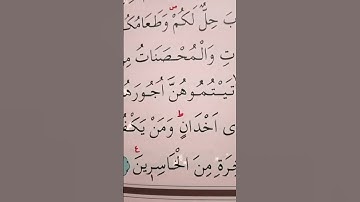 حِلٌّ لَكُمْ وَطَعَامُكُ
وَالْمُحْصَنَاتُ مِ
تَيْتُمُوهُنَّ اُجُورَهُ
اَخْدَانٍ وَمَنْ يَكْفُ
مِنَ الْخَاسِرِينَ